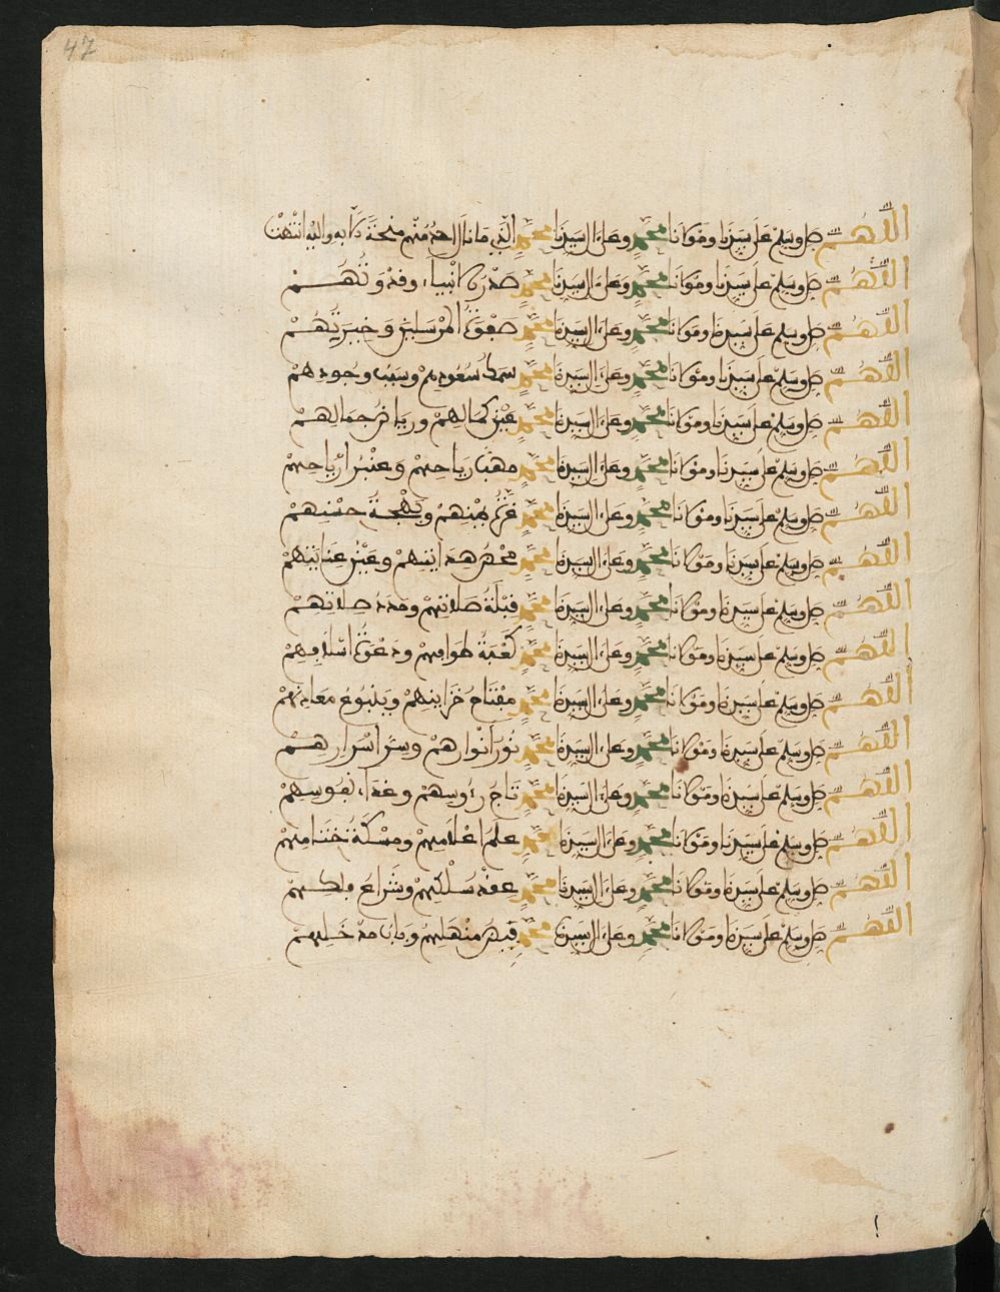 47
اللهم صل وسلم على سيدنا ومولانا محمد وعلى ءال سيدنا محمد الذي ما نال احد منهم منحة الا به واليه انتهت
اللهم صل وسلم على سيدنا ومولانا محمد وعلى ءال سيدنا محمد صدر الانبياء وقدوتهم
اللهم صل وسلم على سيدنا ومولانا محمد وعلى ءال سيدنا محمد صفوة المرسلين وخيرتهم
اللهم صل وسلم على سيدنا ومولانا محمد وعلى ءال سيدنا محمد سعودهم وسبب وجودهم
اللهم صل وسلم على سيدنا ومولانا محمد وعلى ءال سيدنا محمد عين كمالهم ورياض جمالهم
اللهم صل وسلم على سيدنا ومولانا محمد وعلى ءال سيدنا محمد مهب رياحهم وعنبر ارياحهم
اللهم صل وسلم على سيدنا ومولانا محمد وعلى ءال سيدنا محمد غرة وبهجة
اللهم صل وسلم على سيدنا ومولانا محمد وعلى ءال سيدنا محمد محض هدايتهم وعين عنايتهم
اللهم صل وسلم على سيدنا ومولانا محمد وعلى ءال سيدنا محمد قبلة صلاتهم ومدد صلاتهم
اللهم صل وسلم على سيدنا ومولانا محمد وعلى ءال سيدنا محمد كعبة طوافهم ودعوة اسلافهم
اللهم صل وسلم على سيدنا ومولانا محمد وعلى ءال سيدنا محمد مفتاح خزاينهم وينبوع معادنهم
اللهم صل وسلم على سيدنا ومولانا محمد وعلى ءال سيدنا محمد نور انوارهم وسر اسرارهم
اللهم صل وسلم على سيدنا ومولانا محمد وعلى ءال سيدنا محمد تاج رءوسهم وغذاء نفوسهم
اللهم صل وسلم على سيدنا ومولانا محمد وعلى ءال سيدنا محمد علم اعلامهم ومسكة ختامهم
اللهم صل وسلم على سيدنا ومولانا محمد وعلى ءال سيدنا محمد عقد سلكهم وشراع فلكهم
اللهم صل وسلم على سيدنا ومولانا محمد وعلى ءال سيدنا محمد منهلهم